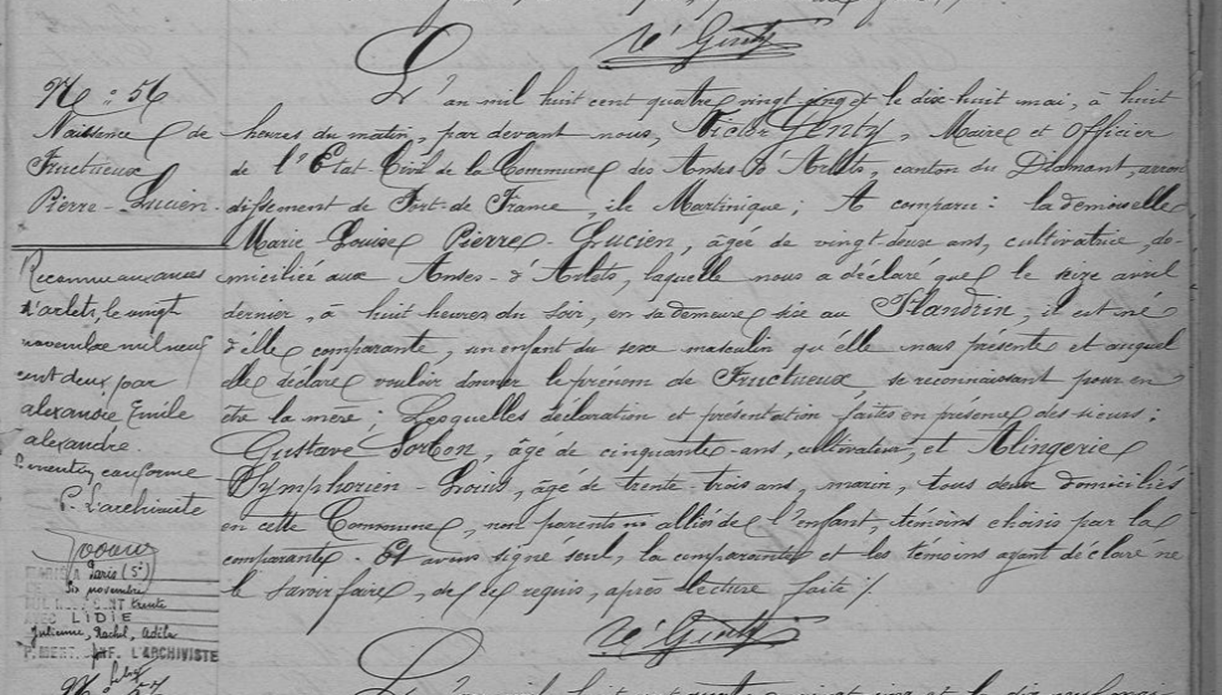 Vr Genty
N° 56
Naissance de
Fructueux
Pierre-Lucien.
L'an mil huit cent quatre vingt-cinq et le dix-huit mai, à huit
heures du matin, par devant nous, Victor Genty, Maire et Officier
de l'Etat-Civil de la Commune des Anses-d'Arlets, canton du Diamant, arron
dissement de Fort-de-France, île Martinique; A comparu: la demoiselle
Marie-Louise Pierre-Lucien, âgée de vingt-deux ans, cultivatrice, do-
miciliée aux Anses-d'Arlets, laquelle nous a déclaré que le seize avril
dernier, à huit heures du soir, en sa demeure sise au Flandrin, il est né
d'elle comparante, un enfant du sexe masculin qu'elle nous présente et auquel
elle déclare vouloir donner le prénom de Fructueux se reconnaissant pour en
être la mère; Lesquelles déclaration et présentation faites en présence des sieurs:
Gustave Sorbon, âgé de cinquante-ans, cultivateur, et Alingerie
Symphorien-Louis, âgé de trente-trois ans, marin, tous deux domiciliés
en cette Commune, non parents ni alliés de l'enfant, témoins choisis par la
comparante. Et avons signé seul, la comparante et les témoins ayant déclaré ne
le savoir faire, de ce requis, après lecture faite /.
Vr Genty
Reconnu aux anses
d'arlets, le vingt
novembre mil neuf
cent deux par
alexandre Emile
alexandre.
P. mention conforme
P. L'archiviste
MARIÉ A Paris (5e)
six novembre
MIL NEUF CENT trente
AVEC LIDIE
Julienne, Rachel, Adila
P. MENT. CONF. L'ARCHIVISTE
L'an mil huit cent quatre vingt cinq et le dix